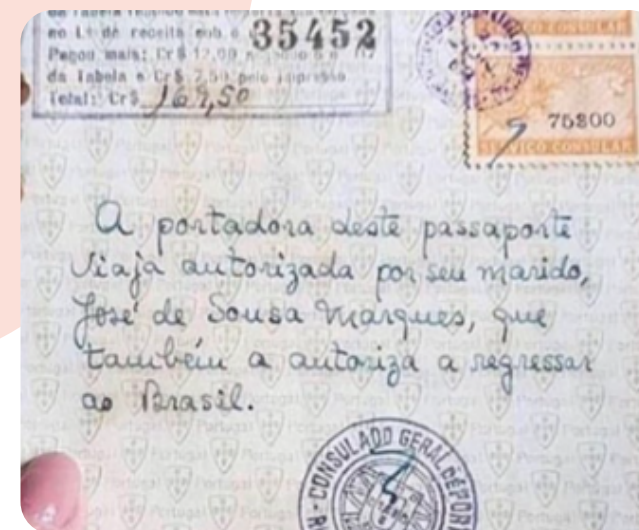 da Tabela
ao Lº de receita sob o 35452
Pagou mais: Cr$ 12,00
da Tabela e Cr$ 7,50 pelo impresso
Total: Cr$ 169,50
75$00
SERVIÇO CONSULAR
A portadora deste passaporte
viaja autorizada por seu marido,
José de Sousa Marques, que
também a autoriza a regressar
ao Brasil.
CONSULADO GERAL DE POR